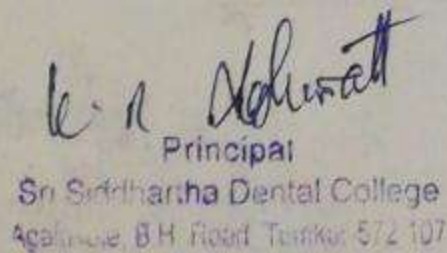 K. R
Principal
Sri Siddhartha Dental College
Agalkote, B.H. Road Tumkur 572 107